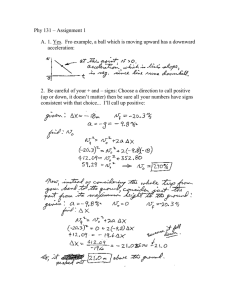 Phy 131 – Assignment 1
A. 1. Yes. Fro example, a ball which is moving upward has a downward
acceleration:
at the point v = 0,
acceleration, which is this slope,
is neg. since line runs downhill.
2. Be careful of your + and – signs: Choose a direction to call positive
(up or down, it doesn't matter) then be sure all your numbers have signs
consistent with that choice... I'll call up positive:
given: ΔX = -18m v = -20.3 m/s
a = -g = -9.8 m/s²
find: v₀
v² = v₀² + 2aΔX
(-20.3)² = v₀² + 2(-9.8)(-18)
412.09 = v₀² + 352.80
59.29 = v₀²
Now, instead of considering the whole trip from
your hand to the ground, consider just the
part from its maximum height to the ground:
given: a = -9.8 m/s² v₀ = 0 v = 20.3 m/s
find: ΔX
v² = v₀² + 2aΔX
(-20.3)² = 0 + 2(-9.8)ΔX
412.09 = -19.6 ΔX
ΔX = 412.09 / -19.6 = -21.0
So, it 21.0 m above the ground.